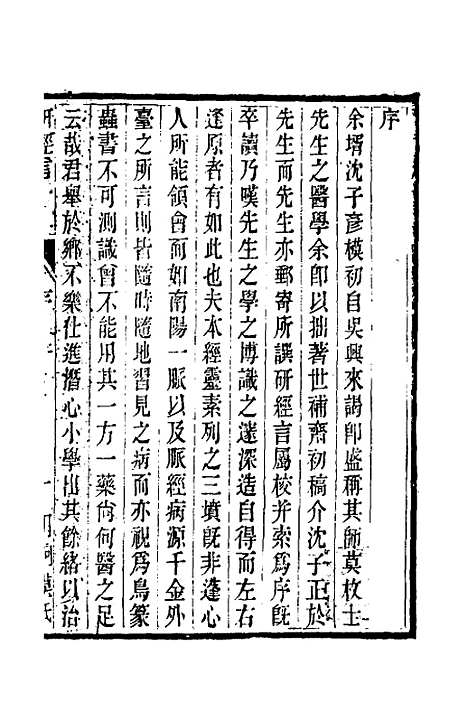 序
余壻沈子彥模初自吳興來謁卽盛稱其師莫枚士
先生之醫學余卽以拙著世補齋初稿介沈子正於
先生而先生亦郵寄所譔研經言屬校并索爲序旣
卒讀乃嘆先生之學之博識之邃深造自得而左右
逢原者有如此也夫本經靈素列之三墳旣非蓬心
人所能領會而如南陽一脈以及脈經病源千金外
臺之所言則皆隨時隨地習見之病而亦視爲鳥篆
蟲書不可測識曾不能用其一方一藥尙何醫之足
云哉君舉於鄉不樂仕進潛心小學出其餘緒以治
研經言
序
一
莫氏